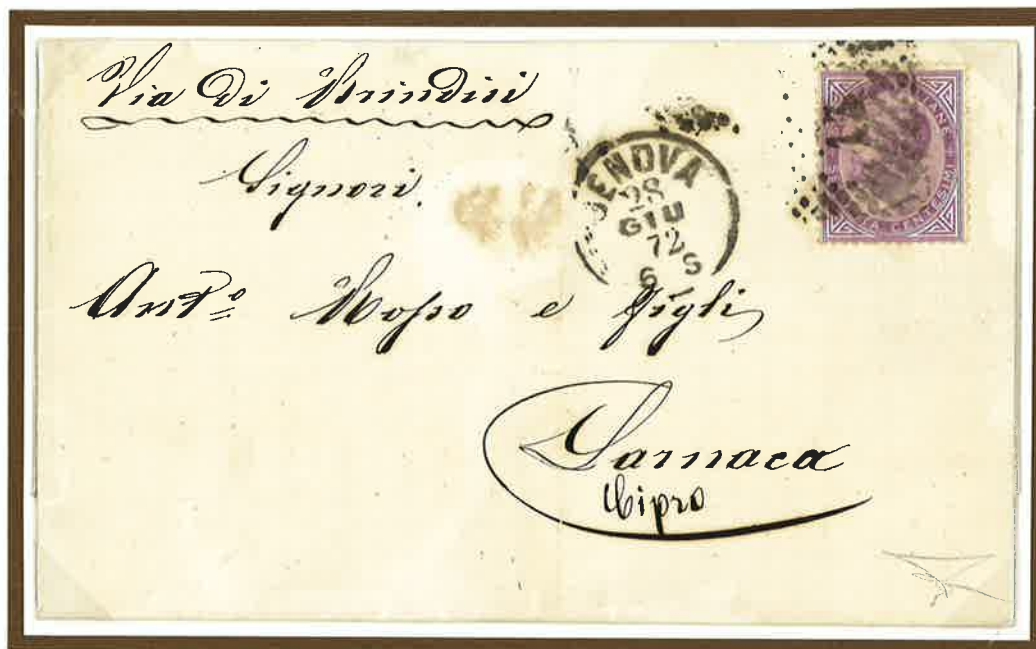 Via Di Brindisi
Signori.
Antº Mosso e Figli
Larnaca
Cipro
GENOVA
28
GIU
72
6 S